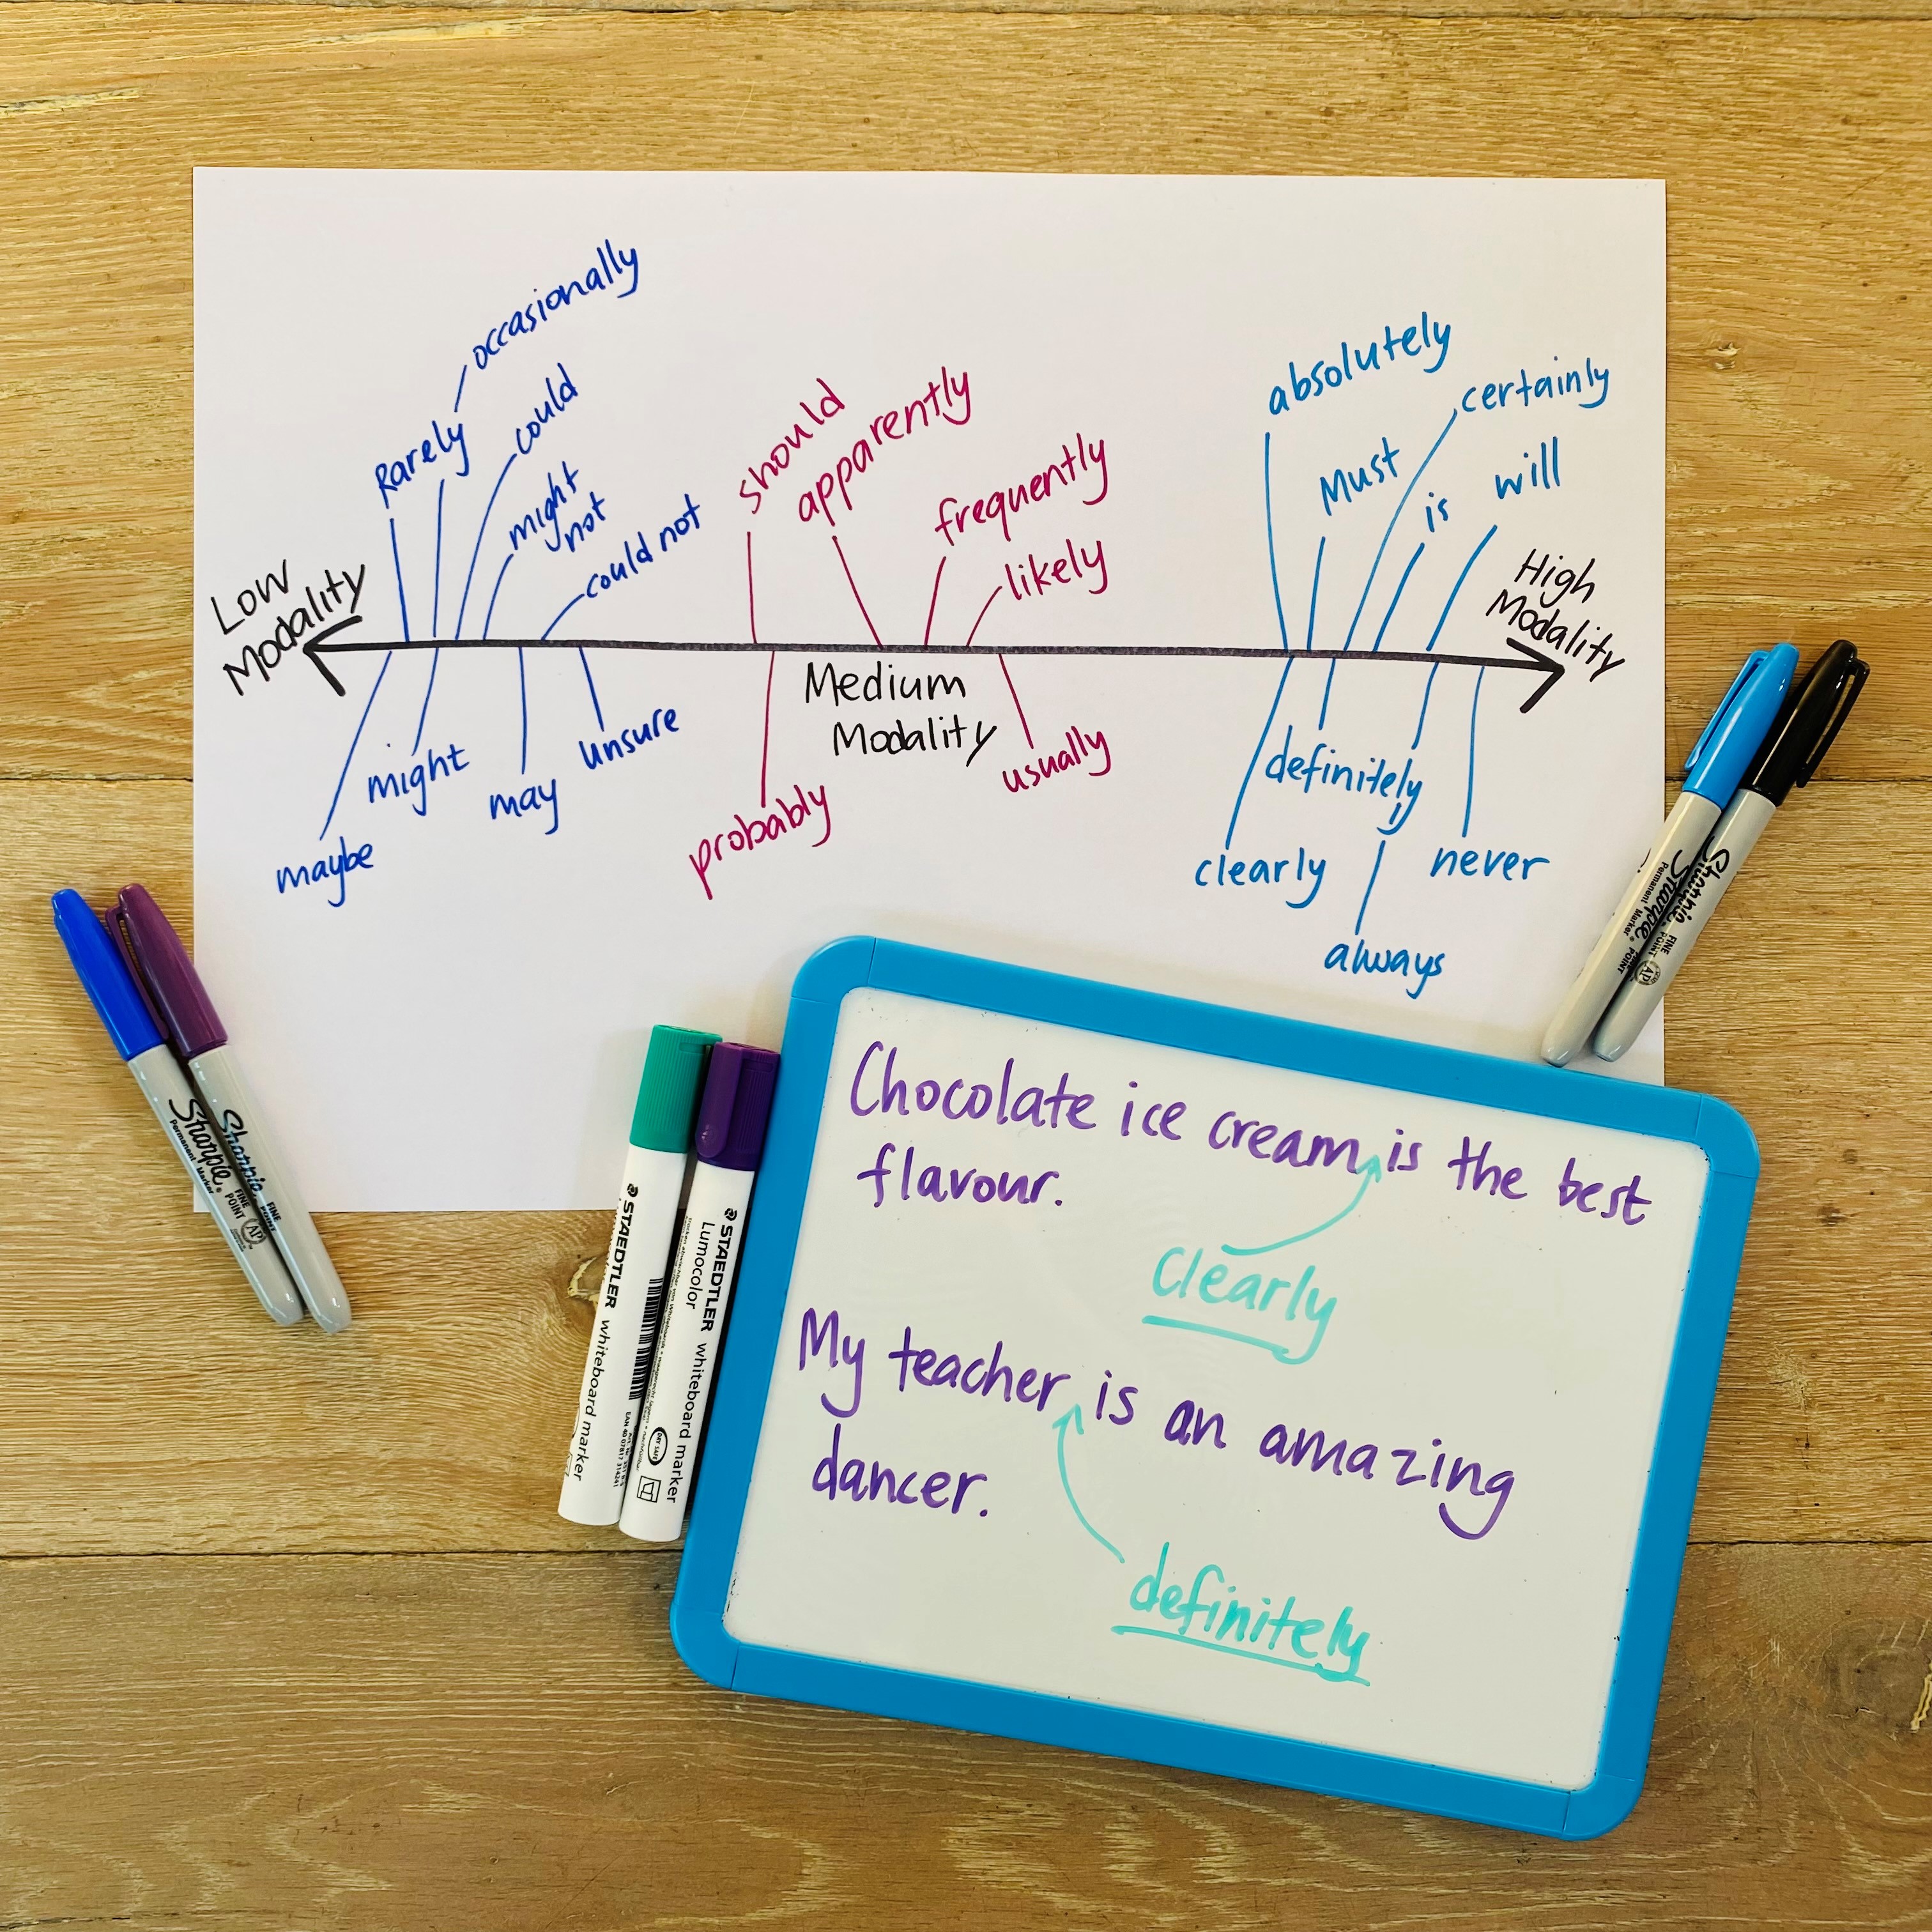 occasionally
Rarely
could
might
not
could not
should
apparently
frequently
likely
absolutely
certainly
Must
is
will
Low
Modality
High
Modality
Medium
Modality
maybe
might
may
unsure
probably
usually
clearly
definitely
always
never
Chocolate ice cream is the best
flavour.
Clearly
My teacher is an amazing
dancer.
definitely
Sharpie
Permanent Marker
FINE
POINT
AP
Sharpie
FINE
POINT
STAEDTLER whiteboard marker
STAEDTLER whiteboard marker
Lumocolor
DRY SAFE
Sharpie
Permanent Marker
FINE
POINT
Sharpie
FINE
POINT
AP